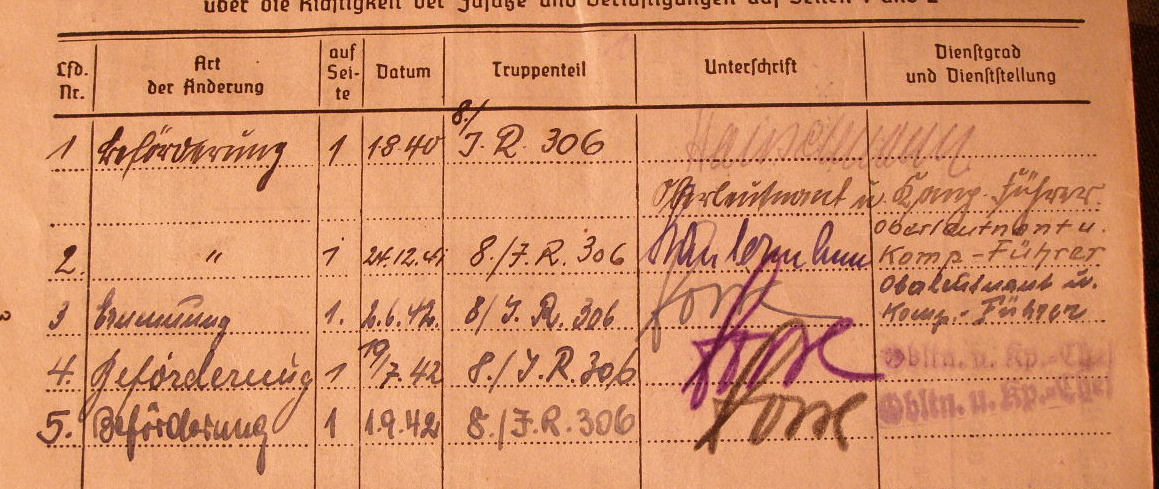 über die Richtigkeit der Zusätze und Berichtigungen auf Seiten 1 und 2
Lfd. Nr. Art der Änderung auf Sei-te Datum Truppenteil Unterschrift Dienstgrad und Dienststellung
1 Beförderung 1 1 8 40 8./J.R. 306
Oberleutnant u. Komp-Führer.
2. " 1 24.12.41 8./J.R. 306 Oberleutnant u. Komp-Führer
3 Ernennung 1. 2.6.42. 8/J.R. 306 Oberleutnant u. Komp.-Führer
4. Beförderung 1 10/7.42 8./J.R. 306 Obltn. u. Kp.-Chef
5. Beförderung 1 1.9.42 8./J.R. 306 Obltn. u. Kp.-Chef